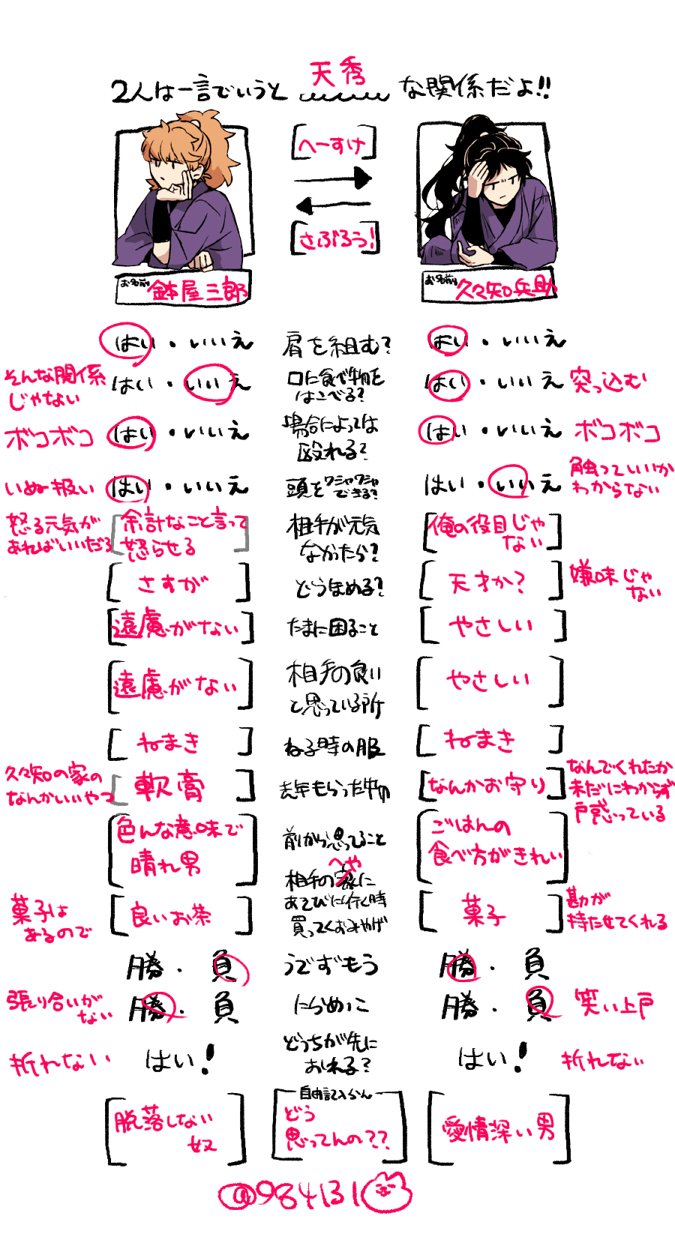 天秀
2人は一言でいうと な関係だよ!!
[へーすけ]
[さぶろう!]
お名前 鉢屋三郎
お名前 久々知兵助
はい・いいえ 肩を組む? はい・いいえ
そんな関係じゃない はい・いいえ 口に食べ物をはこべる? はい・いいえ 突っ込む
ボコボコ はい・いいえ 場合によっては殴れる? はい・いいえ ボコボコ
いぬ扱い はい・いいえ 頭をワシャワシャできる? はい・いいえ 触っていいかわからない
怒る元気があればいいだろ [余計なこと言って怒らせる] 相手が元気なかったら? [俺の役目じゃない]
[さすが] どうほめる? [天才か?] 嫌味じゃない
[遠慮がない] たまに困ること [やさしい]
[遠慮がない] 相手の良いと思っている所 [やさしい]
[ねまき] ねる時の服 [ねまき]
久々知の家のなんかいいやつ [軟膏] 去年もらった物 [なんかお守り] なんでくれたか未だにわからず戸惑っている
[色んな意味で晴れ男] 前から思ってること [ごはんの食べ方がきれい]
菓子はあるので [良いお茶] 相手の家にへやあそびに行く時買ってくおみやげ [菓子] 勘が持たせてくれる
勝・負 うでずもう 勝・負
張り合いがない 勝・負 にらめっこ 勝・負 笑い上戸
折れない はい! どっちが先におれる? はい! 折れない
自由記入らん
[脱落しない奴] [どう思ってんの??] [愛情深い男]
@984131